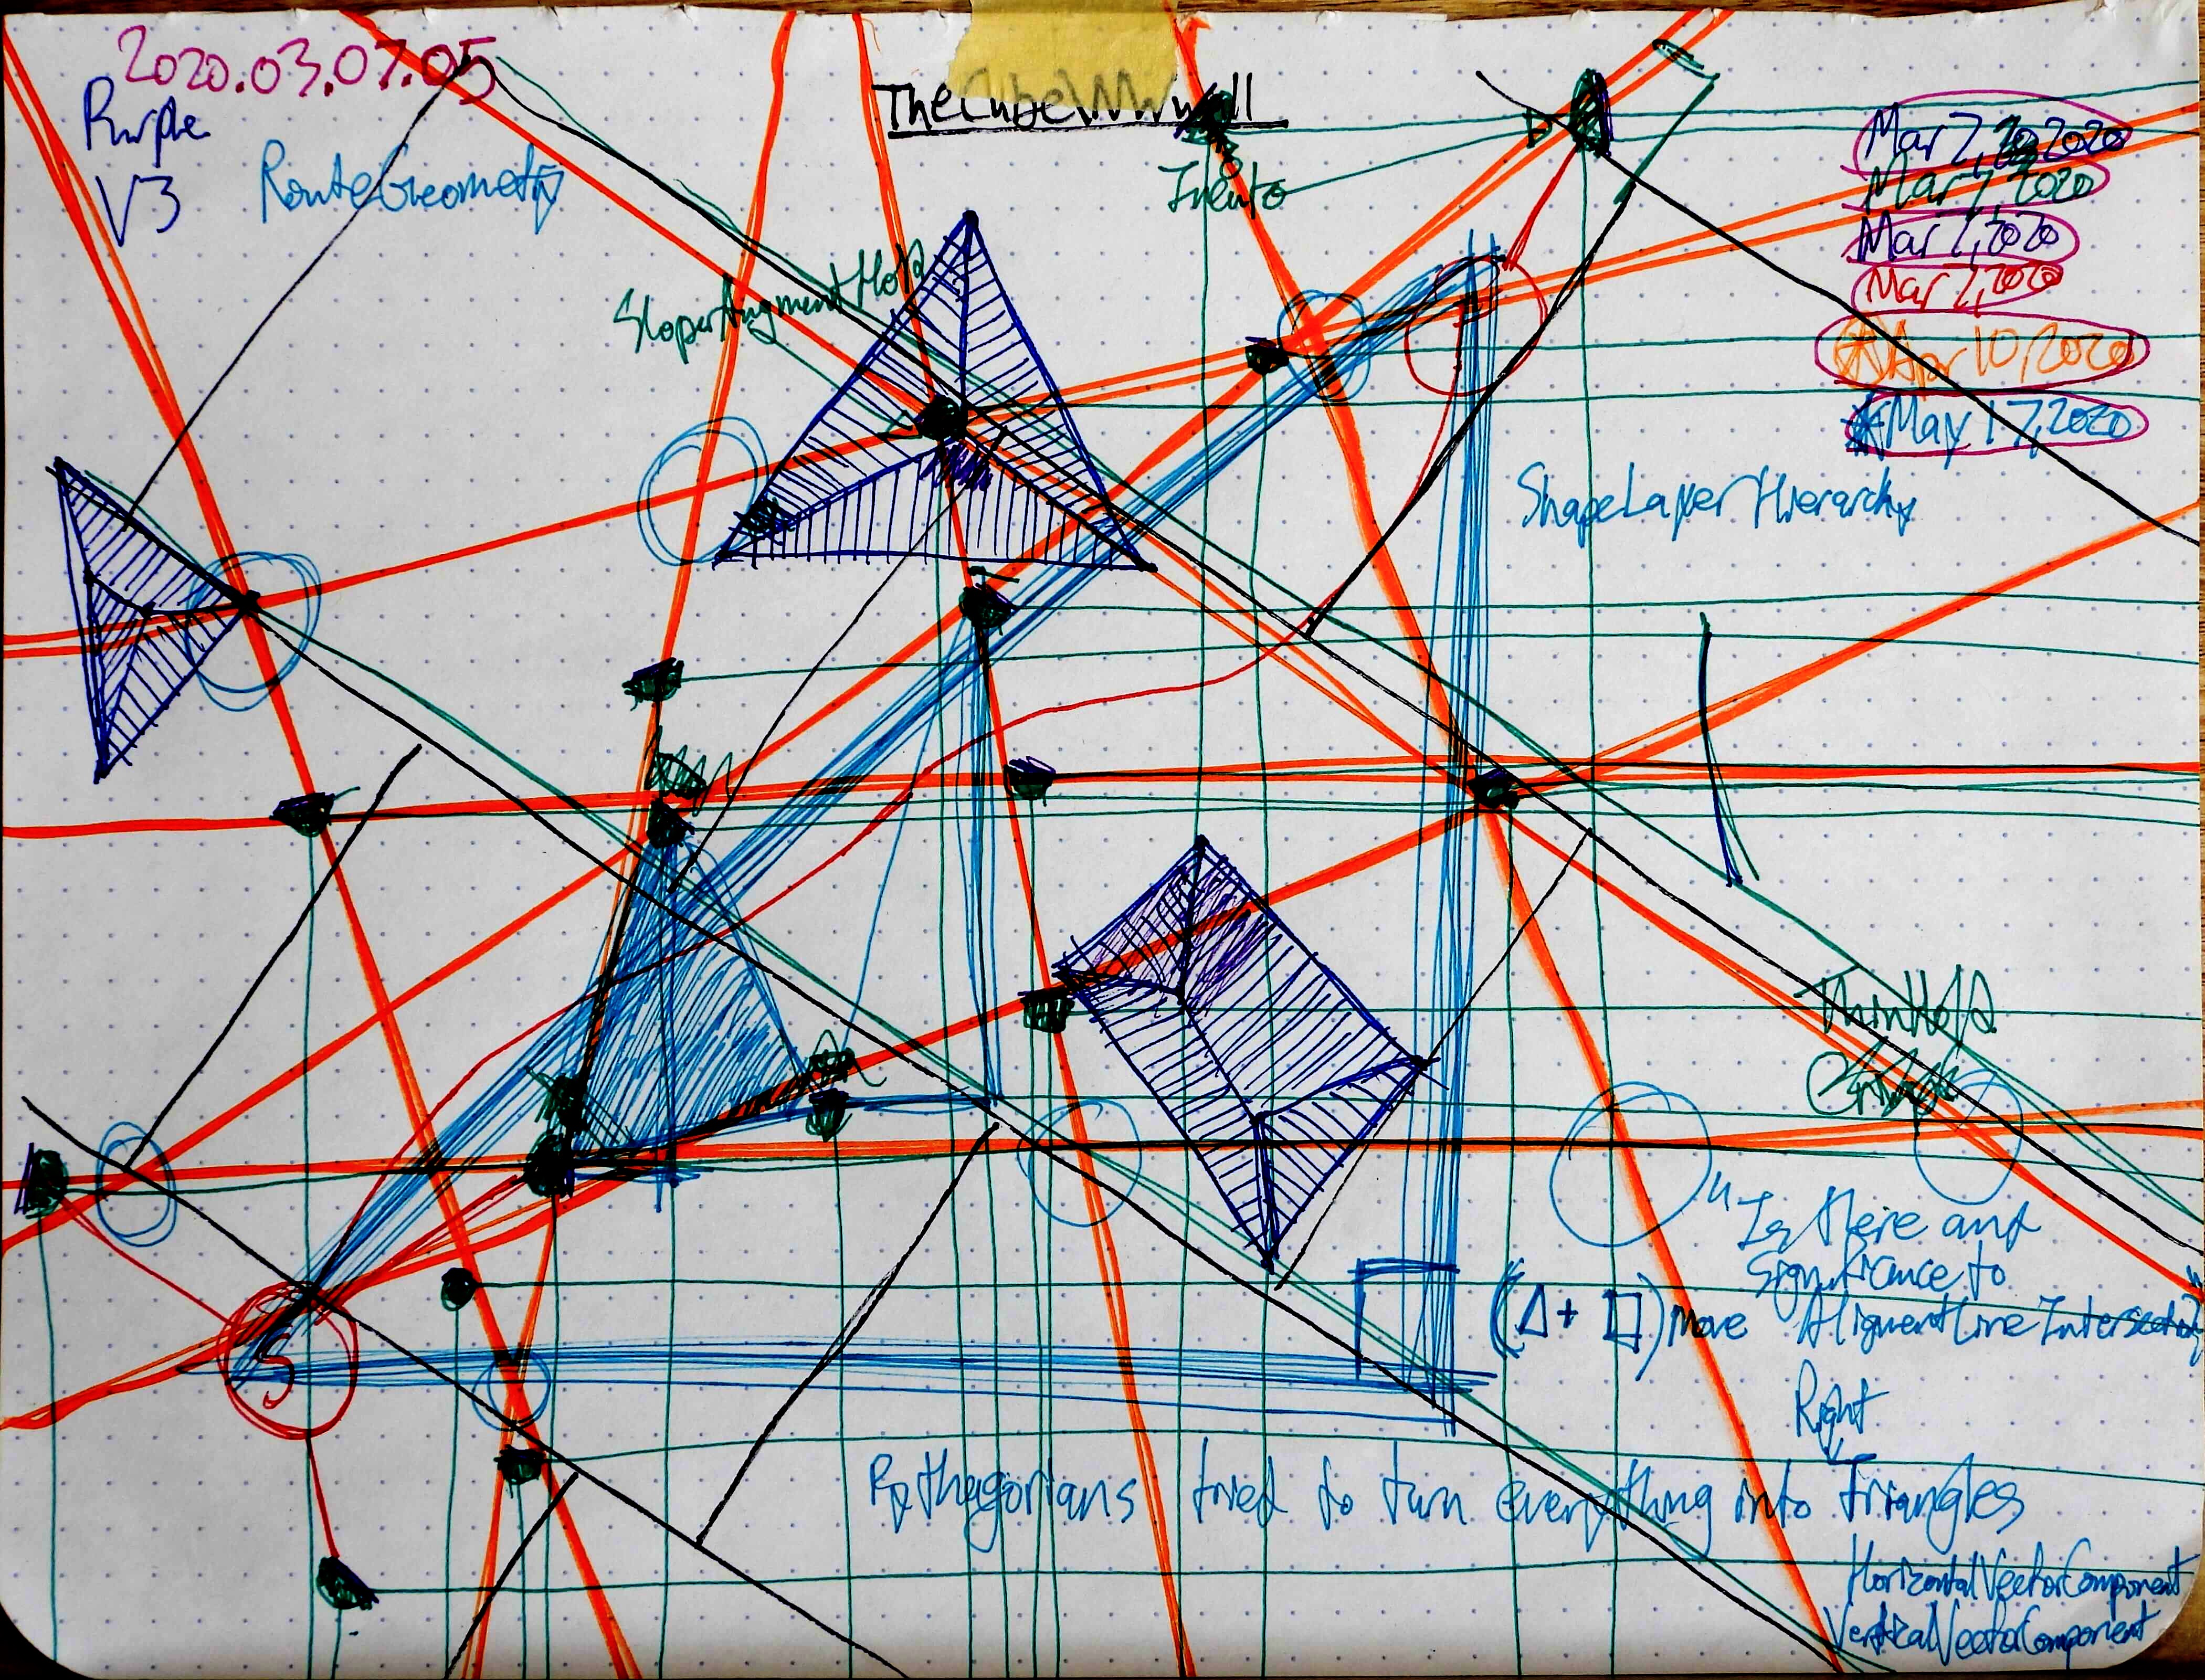 2020.03.07.05
Purple
V3
RouteGeometry
TheCubeNWWall
SloperAugmentHold
Mar 7, 2020
Mar 7, 2020
Mar 7, 2020
Mar 7, 2020
Apr 10, 2020
May 17, 2020
ShapeLayerHierarchy
ThinHold
S
"Is there any
significance to
AlignmentLineIntersection
(Δ+□) Move
Right
Pythagorians tried to turn everything into triangles
HorizontalVectorComponent
VerticalVectorComponent